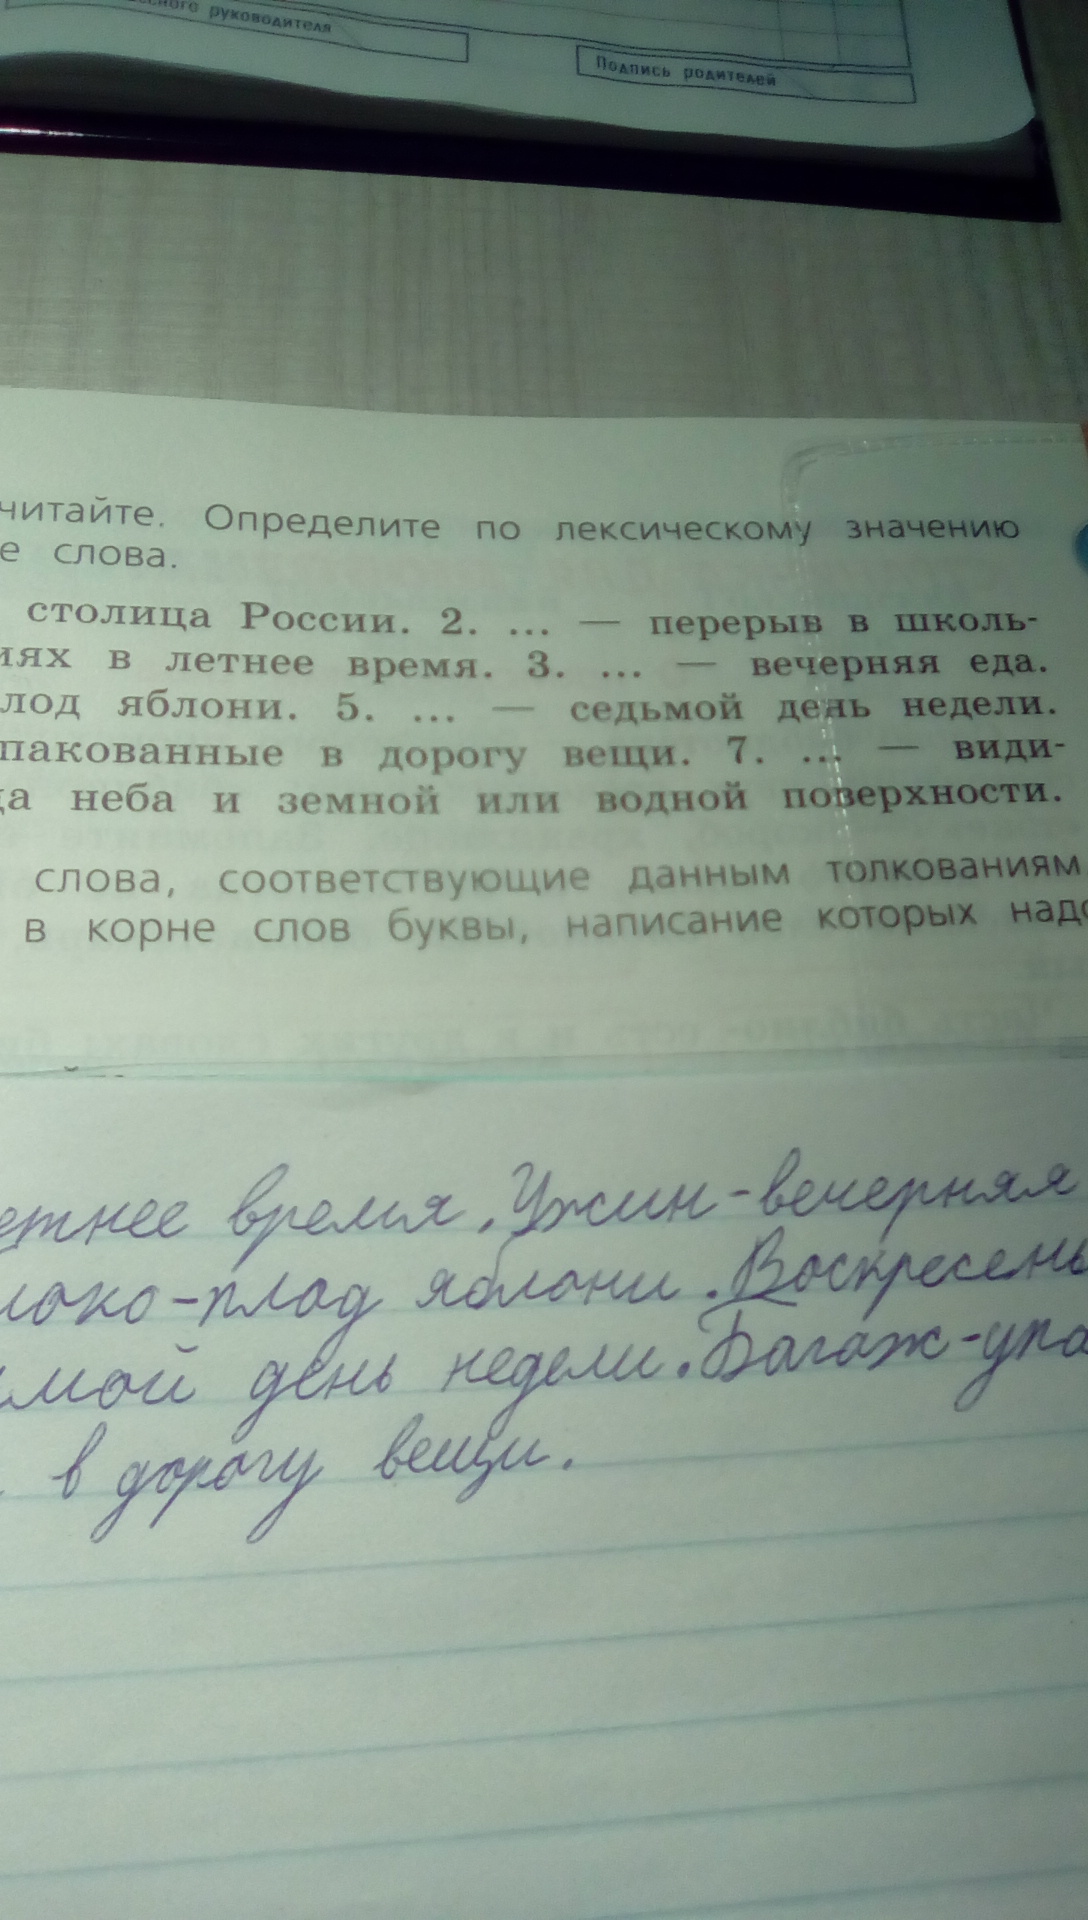 руководителя
Подпись родителей
читайте. Определите по лексическому значению
е слова.
столица России. 2. ... — перерыв в школь-
иях в летнее время. 3. ... — вечерняя еда.
лод яблони. 5. ... — седьмой день недели.
пакованные в дорогу вещи. 7. ... — види-
ца неба и земной или водной поверхности.
слова, соответствующие данным толкованиям
в корне слов буквы, написание которых надо
етнее время. Ужин-вечерняя
локо-плод яблони. Воскресень
мой день недели. Багаж-упа
в дорогу вещи.